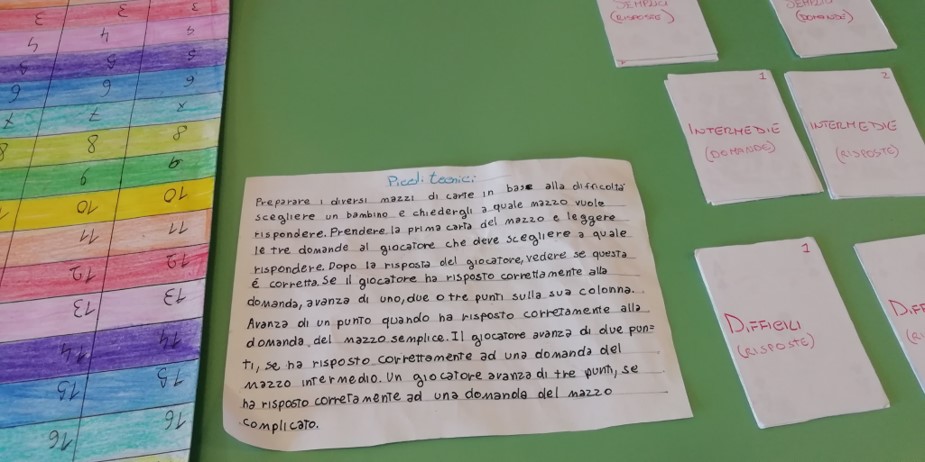 3 3 3
4 4 4
5 5 5
6 6 6
7 7 7
8 8 8
9 9
10 10 10
11 11
12 12
13 13
14 14
15 15
16 16
SEMPLICI
(RISPOSTE)
SEMPLICI
(DOMANDE)
1
INTERMEDIE
(DOMANDE)
2
INTERMEDIE
(RISPOSTE)
Piccoli tecnici
Preparare i diversi mazzi di carte in base alla difficoltà
scegliere un bambino e chiedergli a quale mazzo vuole
rispondere. Prendere la prima carta del mazzo e leggere
le tre domande al giocatore che deve scegliere a quale
rispondere. Dopo la risposta del giocatore, vedere se questa
é corretta. Se il giocatore ha risposto correttamente alla
domanda, avanza di uno, due o tre punti sulla sua colonna.
Avanza di un punto quando ha risposto corretamente alla
domanda del mazzo semplice. Il giocatore avanza di due pun=
ti, se ha risposto correttamente ad una domanda del
mazzo intermedio. Un giocatore avanza di tre punti, se
ha risposto corretamente ad una domanda del mazzo
complicato.
1
DIFFICILI
(RISPOSTE)